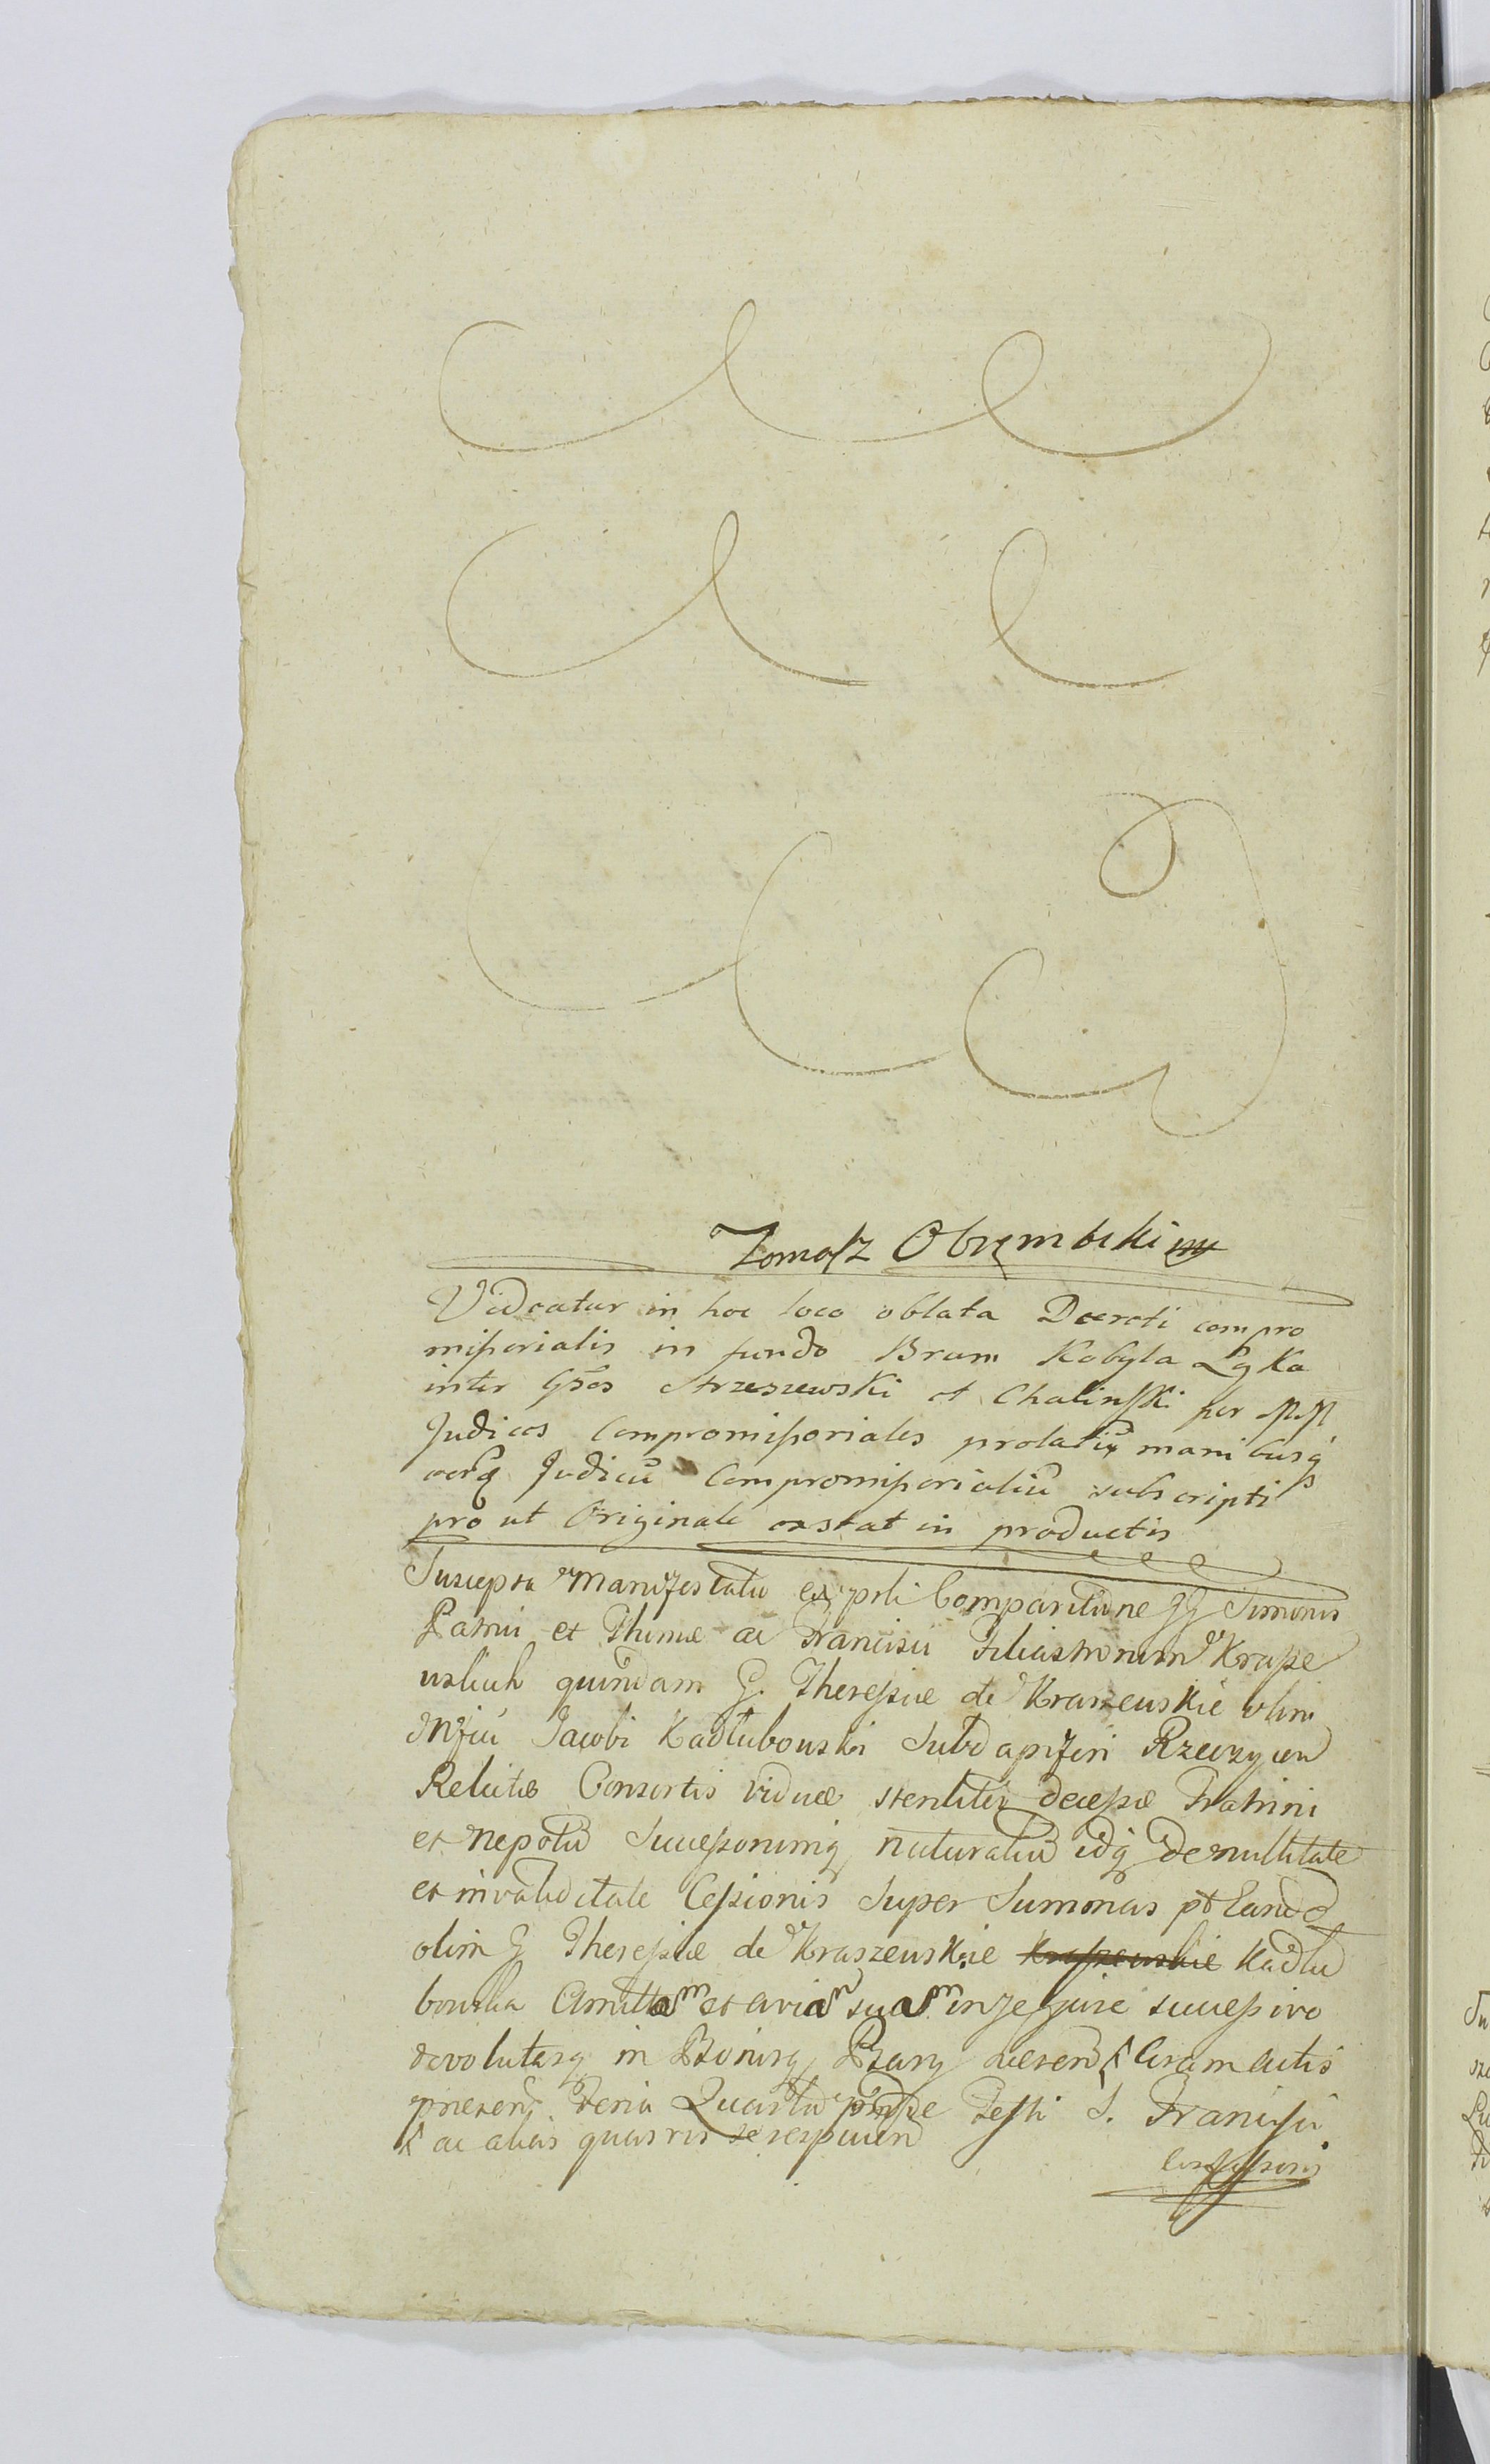 Tomasz Obrembski mp
Videatur in hoc loco oblata Decreti compro
missorialis in fundo Bram Kobyla Łąka
inter Gsos Strzeszewski et Chalinski per MM
Judices Compromissoriales prolatū manibusq
eorq Judicū Compromissorialiū subscripti
pro ut Originale exstat in productis
Suscepta Manifestatio ex psli Comparitione GG Simonis
Patrui et Thomæ ac Francisci Filiastrorum Krasze
wskich quindam G. Theressiæ de Kraszewskie olim
Mfici Jacobi Kadłubowski Subdapiferi Rzeczycen
Relictæ Consortis viduæ steriliter decessæ Fratrini
et Nepotū Successorumq naturaliū idq de nullitate
et invaliditate Cessionis Super Summas pt Eand
olim G Theressiæ de Kraszewskie Kraszewskie Kadłu
bowska Amittam et aviam suam in se jure successivo
devolutasq in Bonisq haeren Coram Actis
praesen Feria Quarta pride Festi S. Francisci
ac alias quasvis se respicien
Confessoris